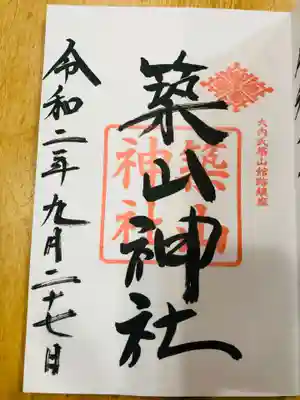 大内氏築山館跡鎮座
築山神社
築山
神社
令和二年九月二十七日